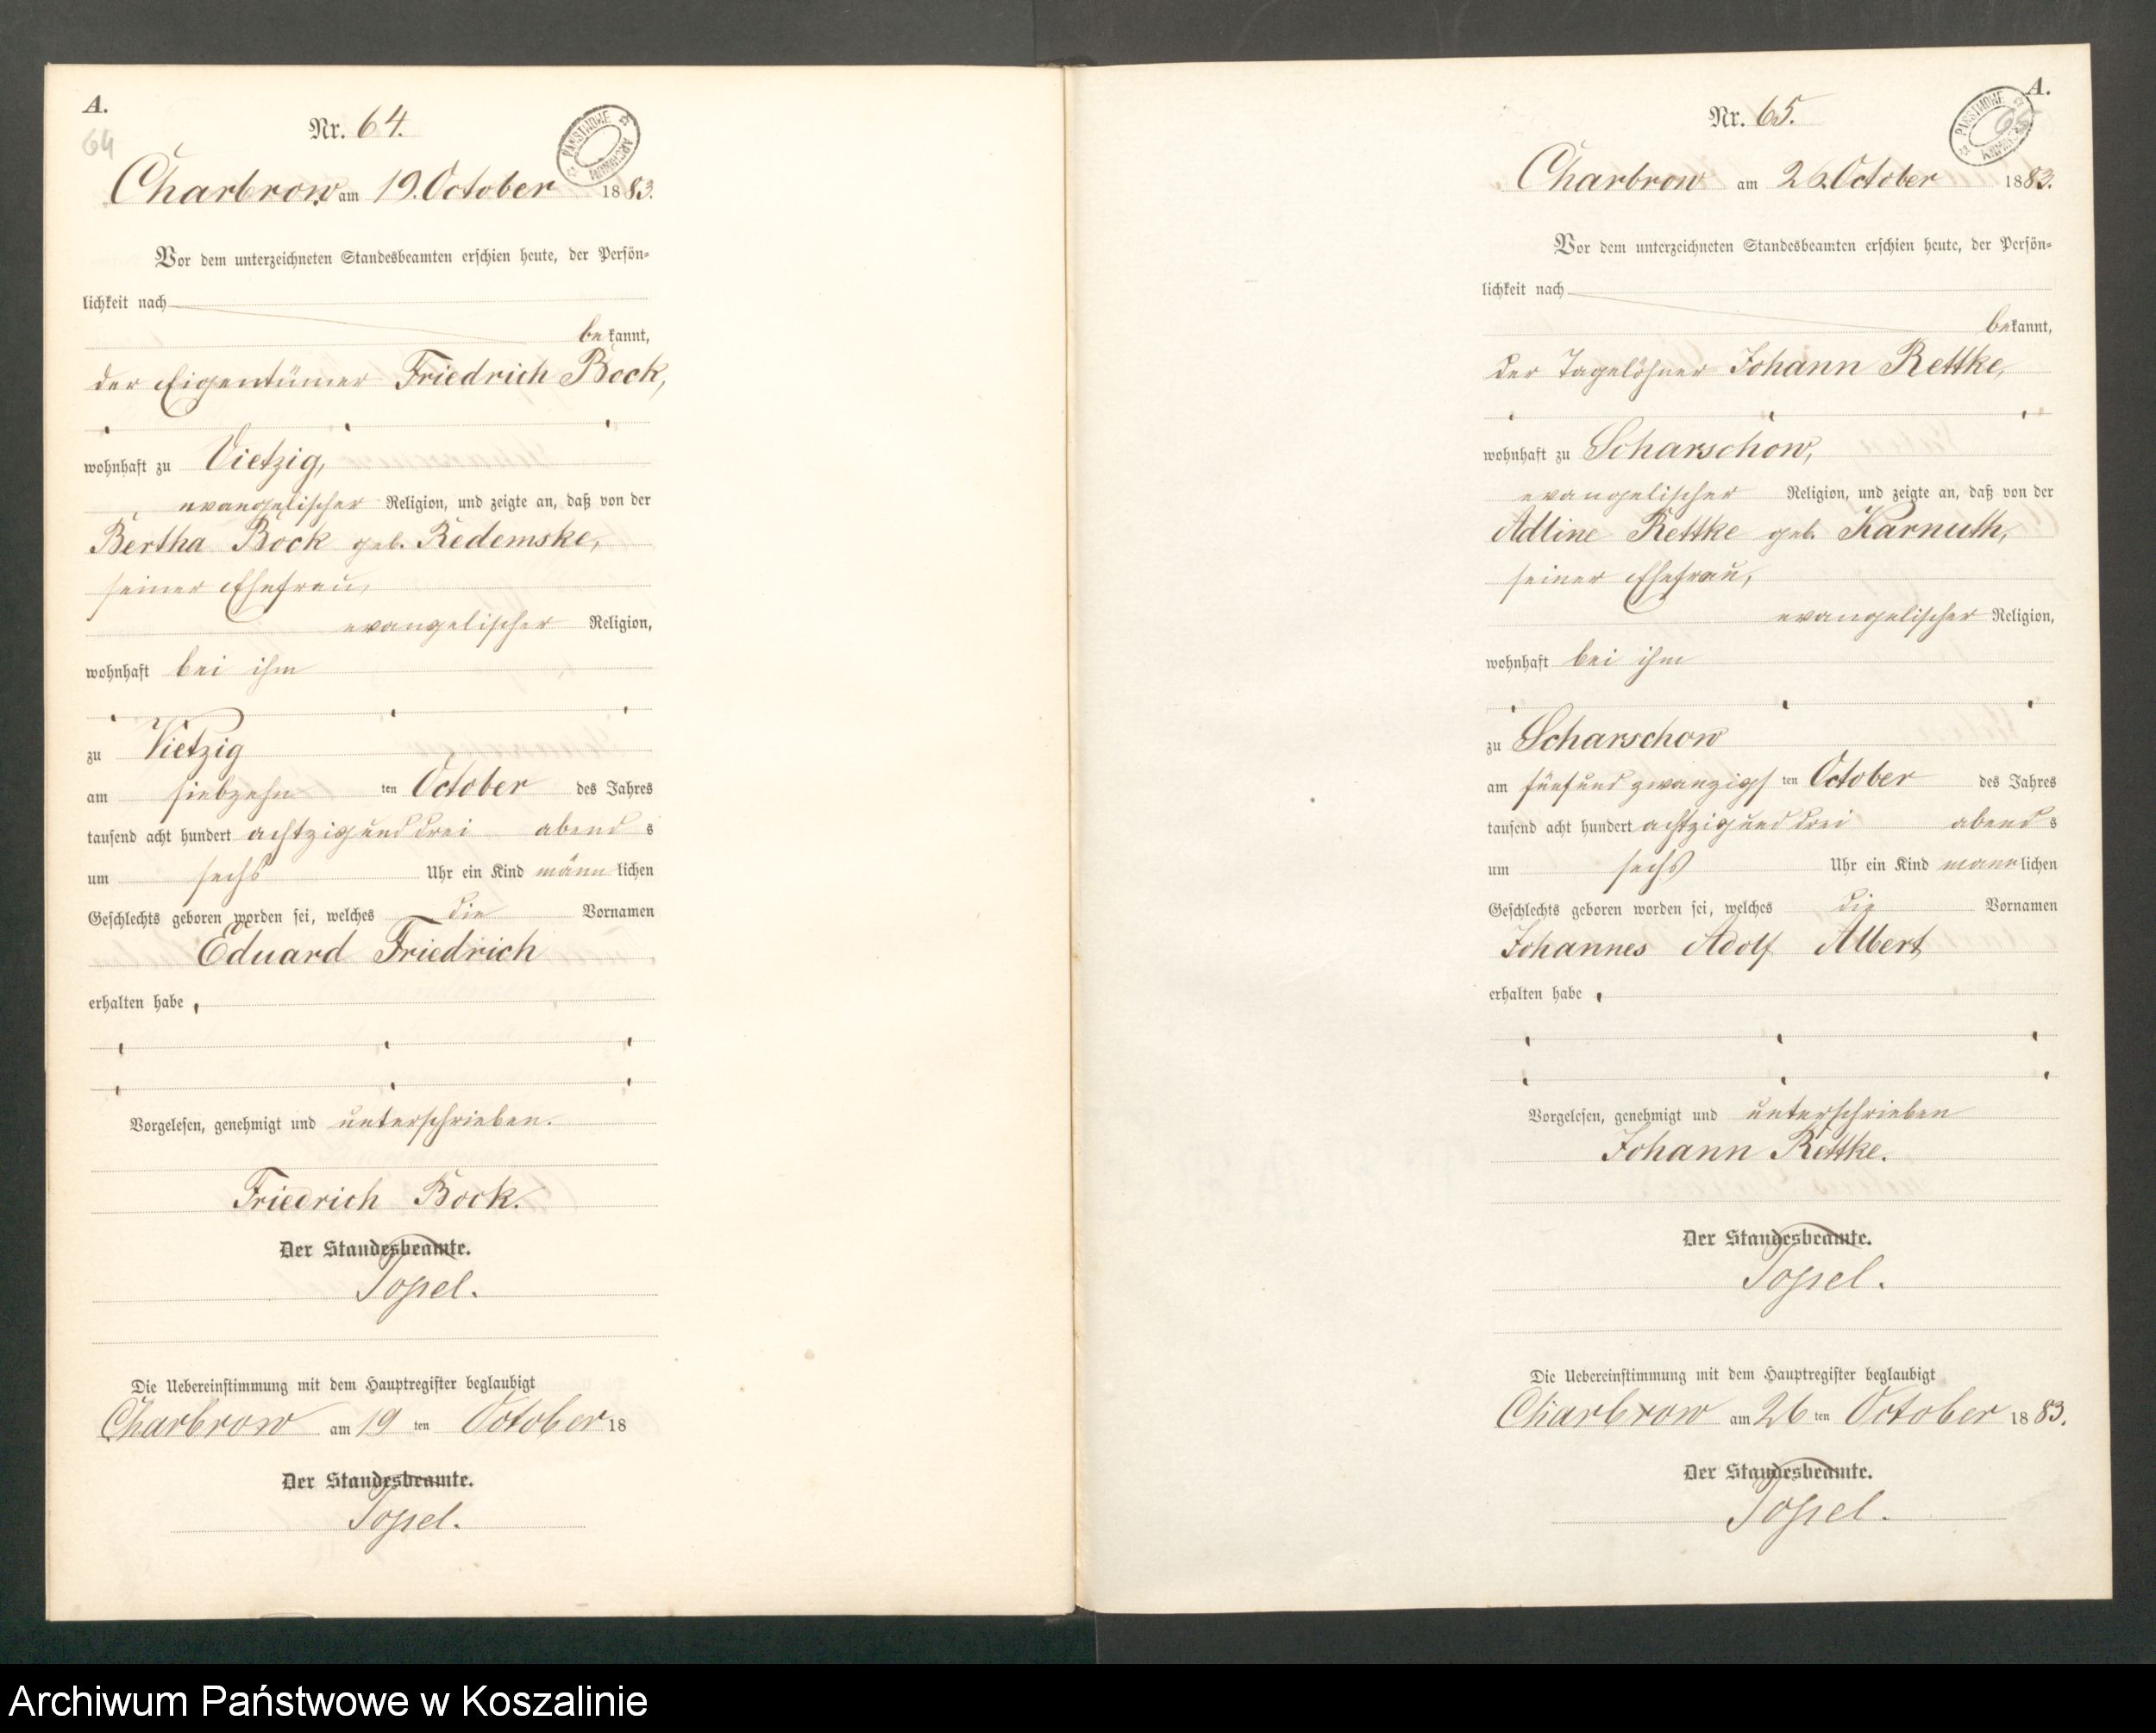 A.
64
Nr. 64.
PAŃSTWOWE ARCHIWUM
Charbrow, am 19. October 1883.
Vor dem unterzeichneten Standesbeamten erschien heute, der Persön-
lichkeit nach
bekannt,
der Eigentümer Friedrich Bock,
wohnhaft zu Vietzig,
evangelischer Religion, und zeigte an, daß von der
Bertha Bock geb. Redemske,
seiner Ehefrau,
evangelischer Religion,
wohnhaft bei ihm
zu Vietzig
am siebzehn ten October des Jahres
tausend acht hundert achtzig und drei abends
um sechs Uhr ein Kind männlichen
Geschlechts geboren worden sei, welches die Vornamen
Eduard Friedrich
erhalten habe.
Vorgelesen, genehmigt und unterschrieben.
Friedrich Bock.
Der Standesbeamte.
Die Uebereinstimmung mit dem Hauptregister beglaubigt
Charbrow am 19 ten October 18
Der Standesbeamte.
A.
65
Nr. 65.
PAŃSTWOWE ARCHIWUM
Charbrow am 26. October 1883.
Vor dem unterzeichneten Standesbeamten erschien heute, der Persön-
lichkeit nach
bekannt,
der Tagelöhner Johann Rettke,
wohnhaft zu Scharschow,
evangelischer Religion, und zeigte an, daß von der
Adline Rettke geb. Karnuth,
seiner Ehefrau,
evangelischer Religion,
wohnhaft bei ihm
zu Scharschow
am fünfundzwanzigsten October des Jahres
tausend acht hundert achtzig und drei abends
um sechs Uhr ein Kind mannlichen
Geschlechts geboren worden sei, welches die Vornamen
Johannes Adolf Albert
erhalten habe.
Vorgelesen, genehmigt und unterschrieben
Johann Rettke.
Der Standesbeamte.
Die Uebereinstimmung mit dem Hauptregister beglaubigt
Charbrow am 26 ten October 1883.
Der Standesbeamte.
Archiwum Państwowe w Koszalinie